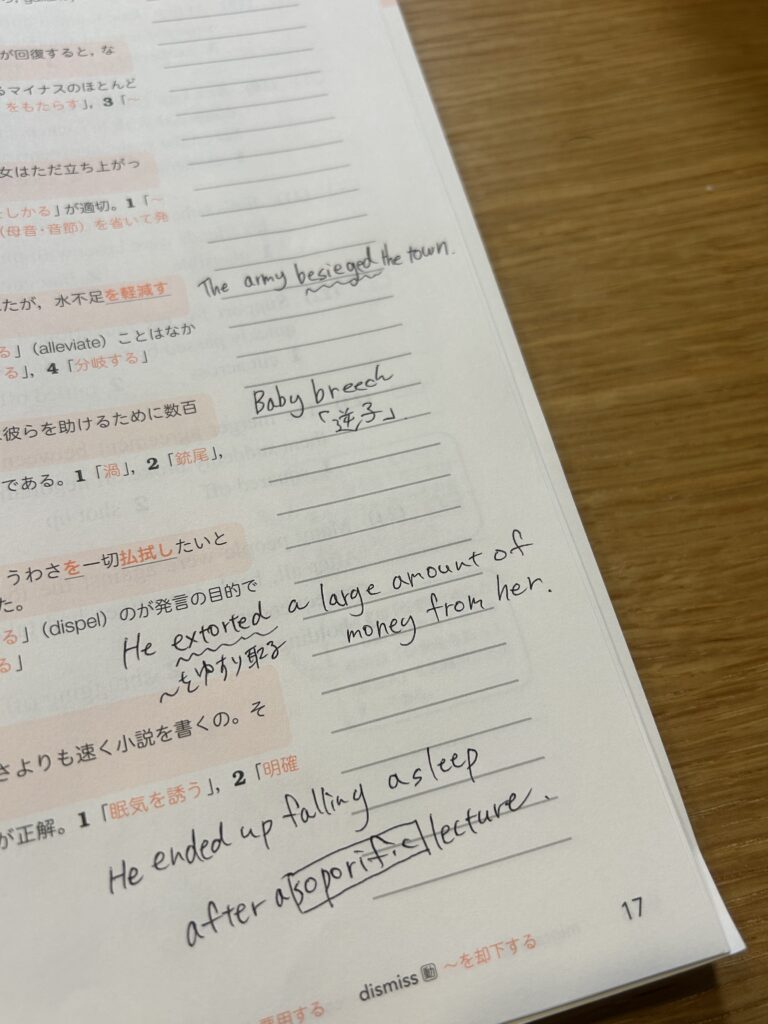 が回復すると，な
るマイナスのほとんど
をもたらす」，3「～
女はただ立ち上がっ
としかる」が適切。1「～
（母音・音節）を省いて発
The army besieged the town.
たが，水不足を軽減す
る」（alleviate）ことはなか
る」，4「分岐する」
Baby breech
「逆子」
彼らを助けるために数百
である。1「渦」，2「銃尾」，
うわさを一切払拭したいと
た。
る」（dispel）のが発言の目的で
る」
He extorted a large amount of
money from her.
～をゆすり取る
さよりも速く小説を書くの。そ
が正解。1「眠気を誘う」，2「明確
He ended up falling asleep
after a soporific lecture.
17
dismiss 動 ～を却下する
雇用する